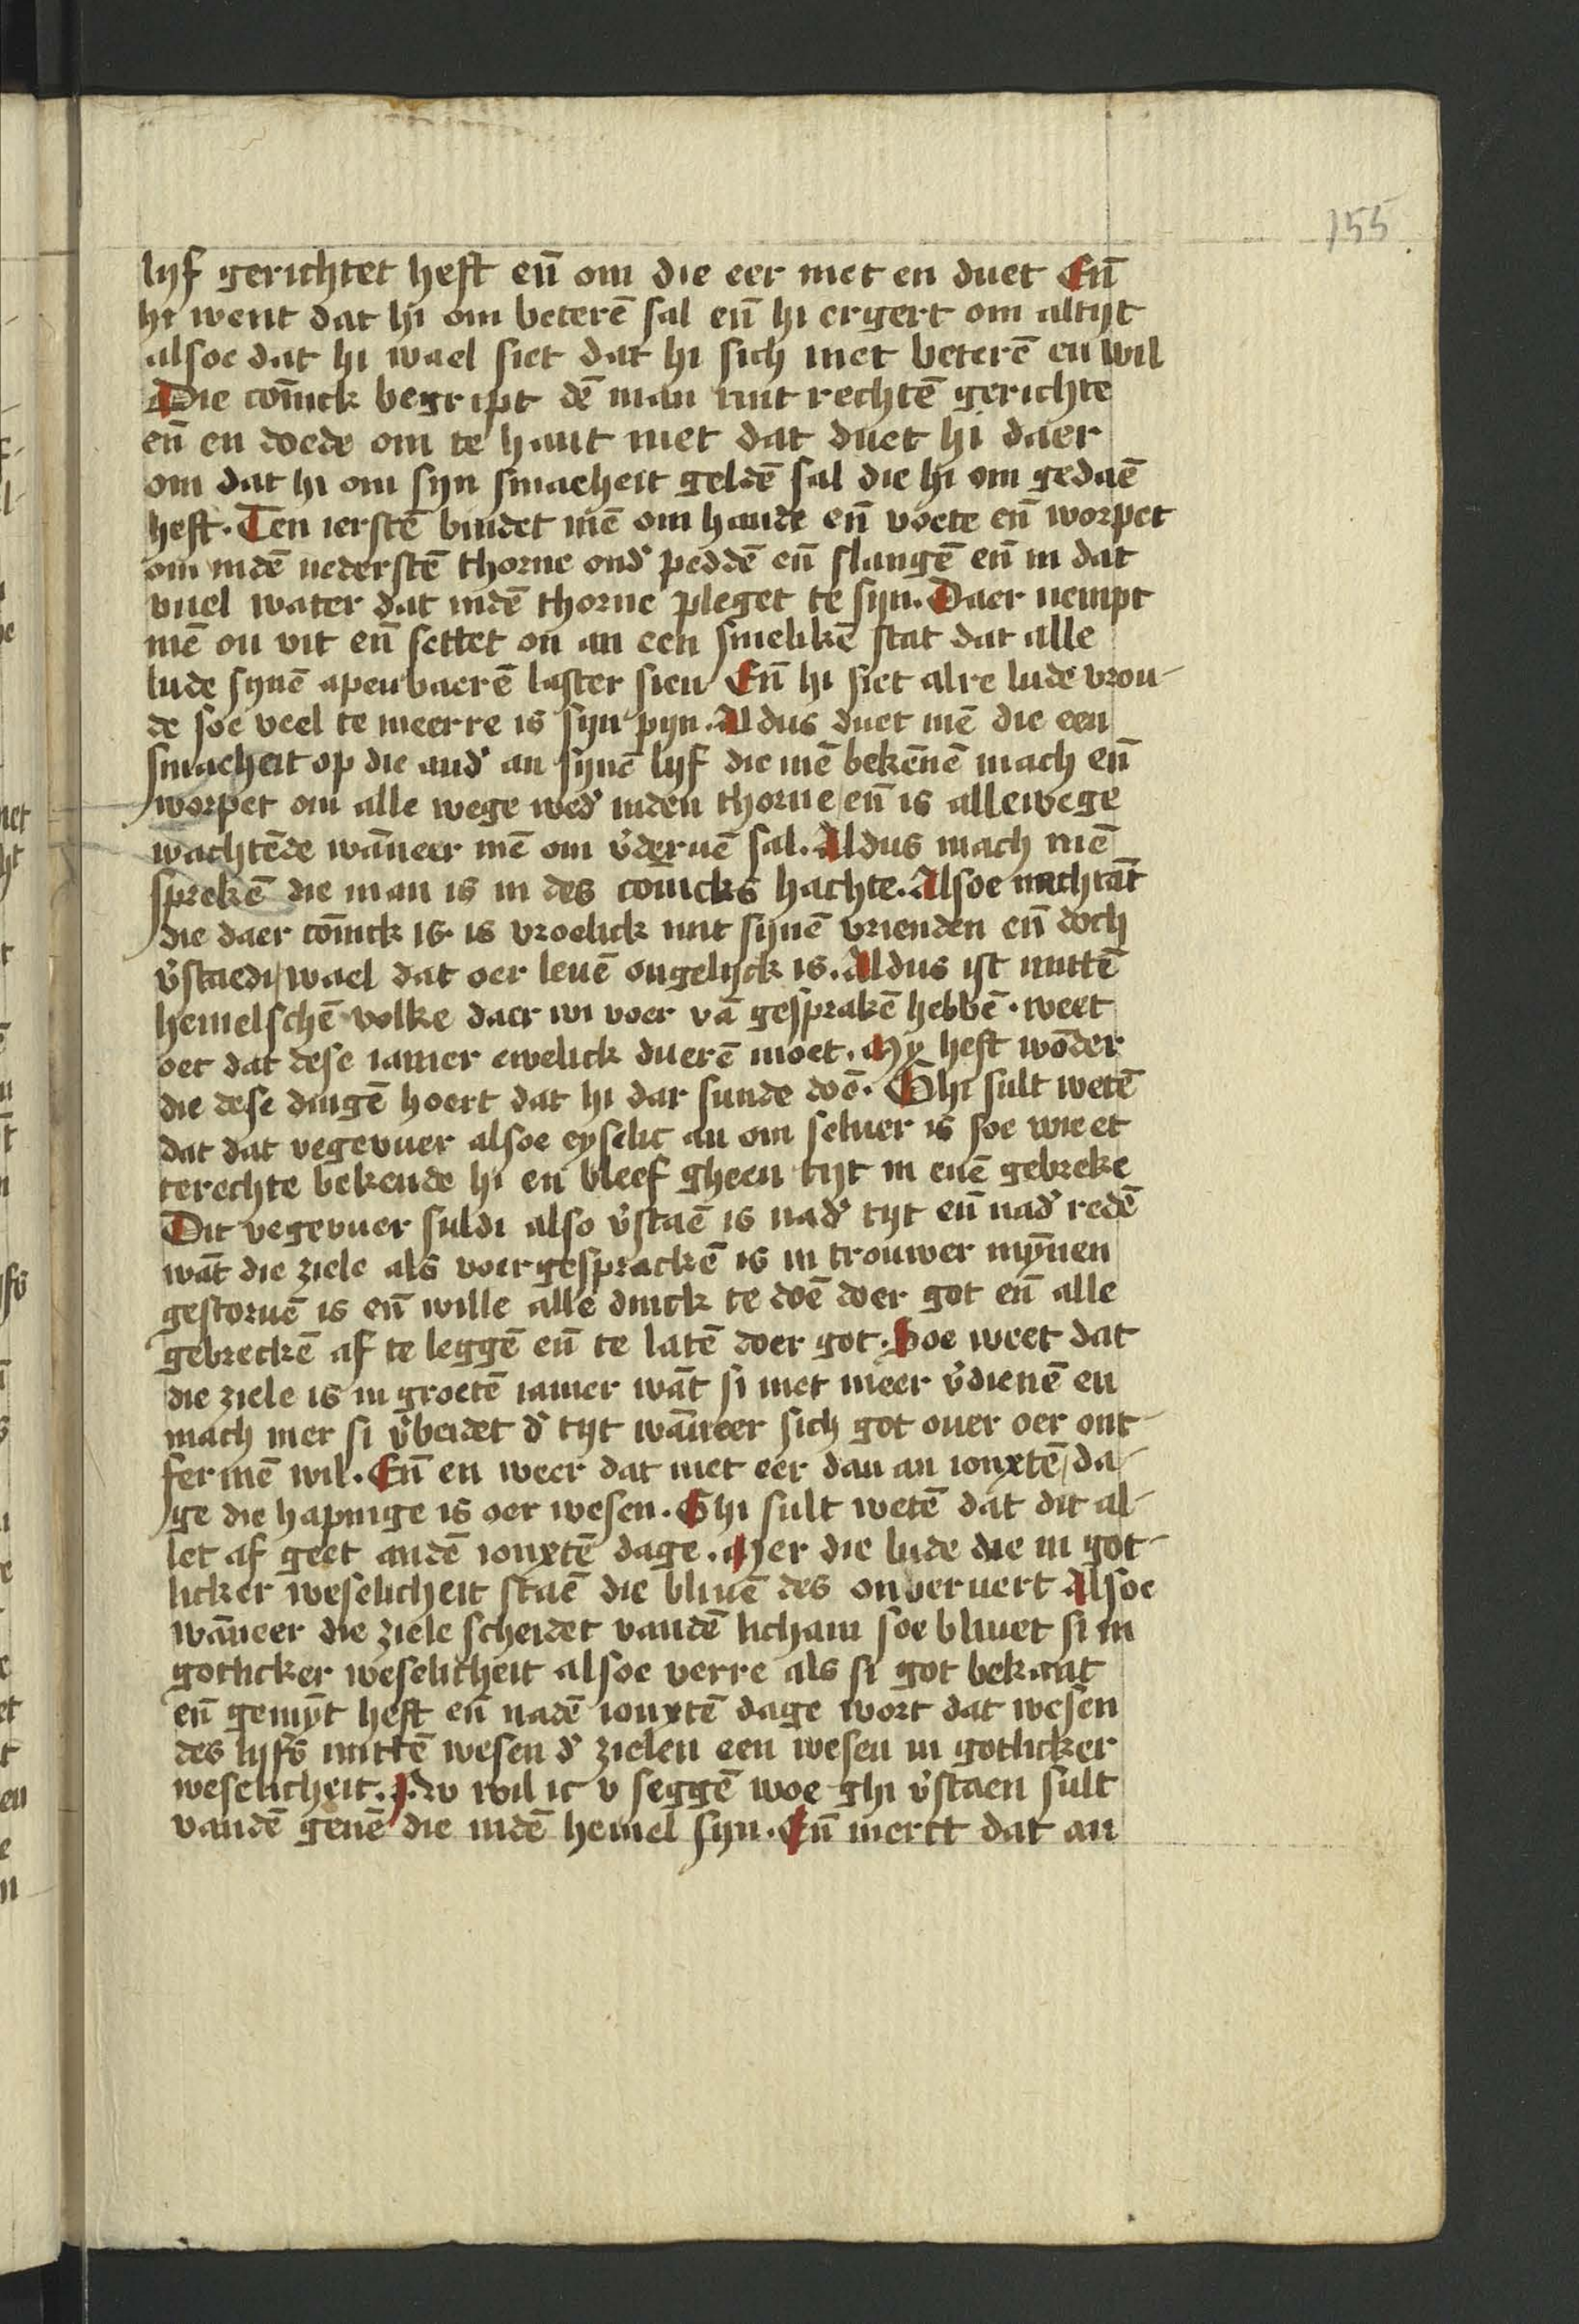 155
lijf gerichtet heft eñ om die eer niet en duet Eñ
hi went dat hi om beterē sal eñ hi ergert om altijt
alsoe dat hi wael siet dat hi sich niet beterē en wil
Die cōinck begript dē man mit rechtē gerichte
eñ en doede om te hant niet dat duet hi daer
om dat hi om sijn smacheit geldē sal die hi om gedaē
heft. Ten ierstē bindet mē om hande eñ voete eñ worpet
om indē nederstē thorne ond' peddē eñ slangē eñ in dat
vuel water dat indē thorne pleget te sijn. Daer nempt
mē on vit eñ settet on an een smelikē stat dat alle
lude sijnē apenbaerē laster sien Eñ hi siet alre lude vrou-
de soe veel te meerre is sijn pijn. Aldus duet mē die een
smacheit op die and' an sijnē lijf die mē bekēnē mach eñ
worpet om alle wege wed' inden thorne eñ is allewege
wachtēde wāneer mē om v'deruē sal. Aldus mach mē
sprekē die man is in des cōincks hachte. Alsoe nachtāt
die daer cōinck is is vroelick mit sijnē vrienden eñ doch
v'staedi wael dat oer leuē ongelijck is. Aldus ist mittē
hemelschē volke daer wi voer vā gesprakē hebbē. weet
oec dat dese iamer ewelick duerē moet. My heft wōder
die dese dingē hoert dat hi dar sunde doē. Ghi sult wetē
dat dat vegevuer alsoe eyselic an om seluer is soe wie et
terechte bekende hi en bleef gheen tijt in enē gebreke
Dit vegevuer suldi also v'staē is nad' tijt eñ nad' redē
wāt die ziele als voergesprackē is in trouwer mȳnen
gestoruē is eñ wille alle dinck te doē doer got eñ alle
gebreckē af te leggē eñ te latē doer got. Soe weet dat
die ziele is in groetē iamer wāt si niet meer v'dienē en
mach mer si v'beidet d' tijt wāneer sich got ouer oer ont-
fermē wil. Eñ en weer dat niet eer dan an ionxtē da-
ge die hapinge is oer wesen. Ghi sult wetē dat dit al-
let af geet andē ionxtē dage. Mer die lude die in got-
licker weselicheit staē die bliuē des onveruert Alsoe
wāneer die ziele scheidet vandē licham soe bliuet si in
gotlicker weselicheit alsoe verre als si got bekant
eñ gemȳt heft eñ nadē ionxtē dage wort dat wesen
des lijfs mittē wesen d' zielen een wesen in gotlicker
weselicheit. Nv wil ic v seggē woe ghi v'staen sult
vandē genē die indē hemel sijn. Eñ merct dat an